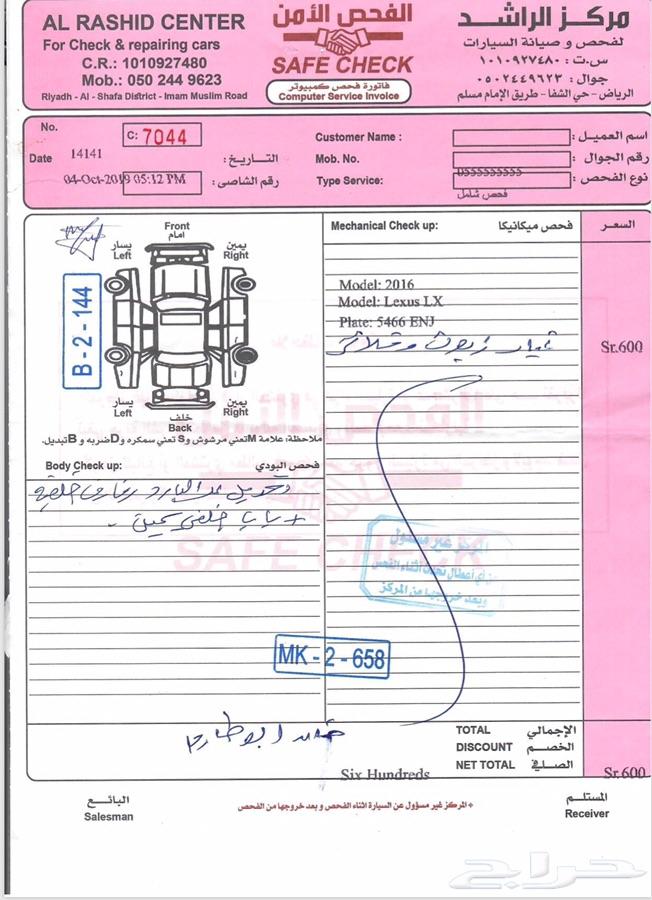 AL RASHID CENTER
For Check & repairing cars
C.R.: 1010927480
Mob.: 050 244 9623
Riyadh - Al - Shafa District - Imam Muslim Road
الفحص الأمن
SAFE CHECK
فاتورة فحص كمبيوتر
Computer Service Invoice
مركز الراشد
لفحص و صيانة السيارات
س.ت : ١٠١٠٩٢٧٤٨٠
جوال : ٠٥٠٢٤٤٩٦٢٣
الرياض - حي الشفا - طريق الإمام مسلم
No. C: 7044
Date 14141 التـاريـخ :
04-Oct-2019 05:12 PM رقم الشاصى :
Customer Name : اسم العميـل :
Mob. No. رقم الجوال :
Type Service: 0555555555 نوع الفحص :
فحص شامل
Front
امام
يسار
Left
يمين
Right
B-2-144
يسار
Left
يمين
Right
خلف
Back
ملاحظة: علامة M تعني مرشوش و S تعني سمكره و D ضربه و B تبديل.
Body Check up: فحص البودي :
خلفي يمين
Mechanical Check up: فحص ميكانيكا :
السعر
Model: 2016
Model: Lexus LX
Plate: 5466 ENJ
Sr.600
المركز غير مسئول
أي أعطال تحدث أثناء الفحص
وبعد خروجها من المركز
MK-2-658
ابو طارق
TOTAL الإجمالي
DISCOUNT الخصـم
NET TOTAL الصـافي
Six Hundreds
Sr.600
البائـع
Salesman
* المركز غير مسؤول عن السيارة اثناء الفحص و بعد خروجها من الفحص
المستلـم
Receiver
حراج